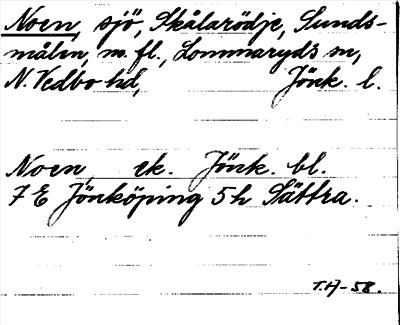 Noen, sjö, Skålarödje, Sunds-
målen, m. fl., Lommaryds sn,
N. Vedbo hd, Jönk. l.
Noen, ek. Jönk. bl.
7 E Jönköping 5h Sättra.
T.H-58.